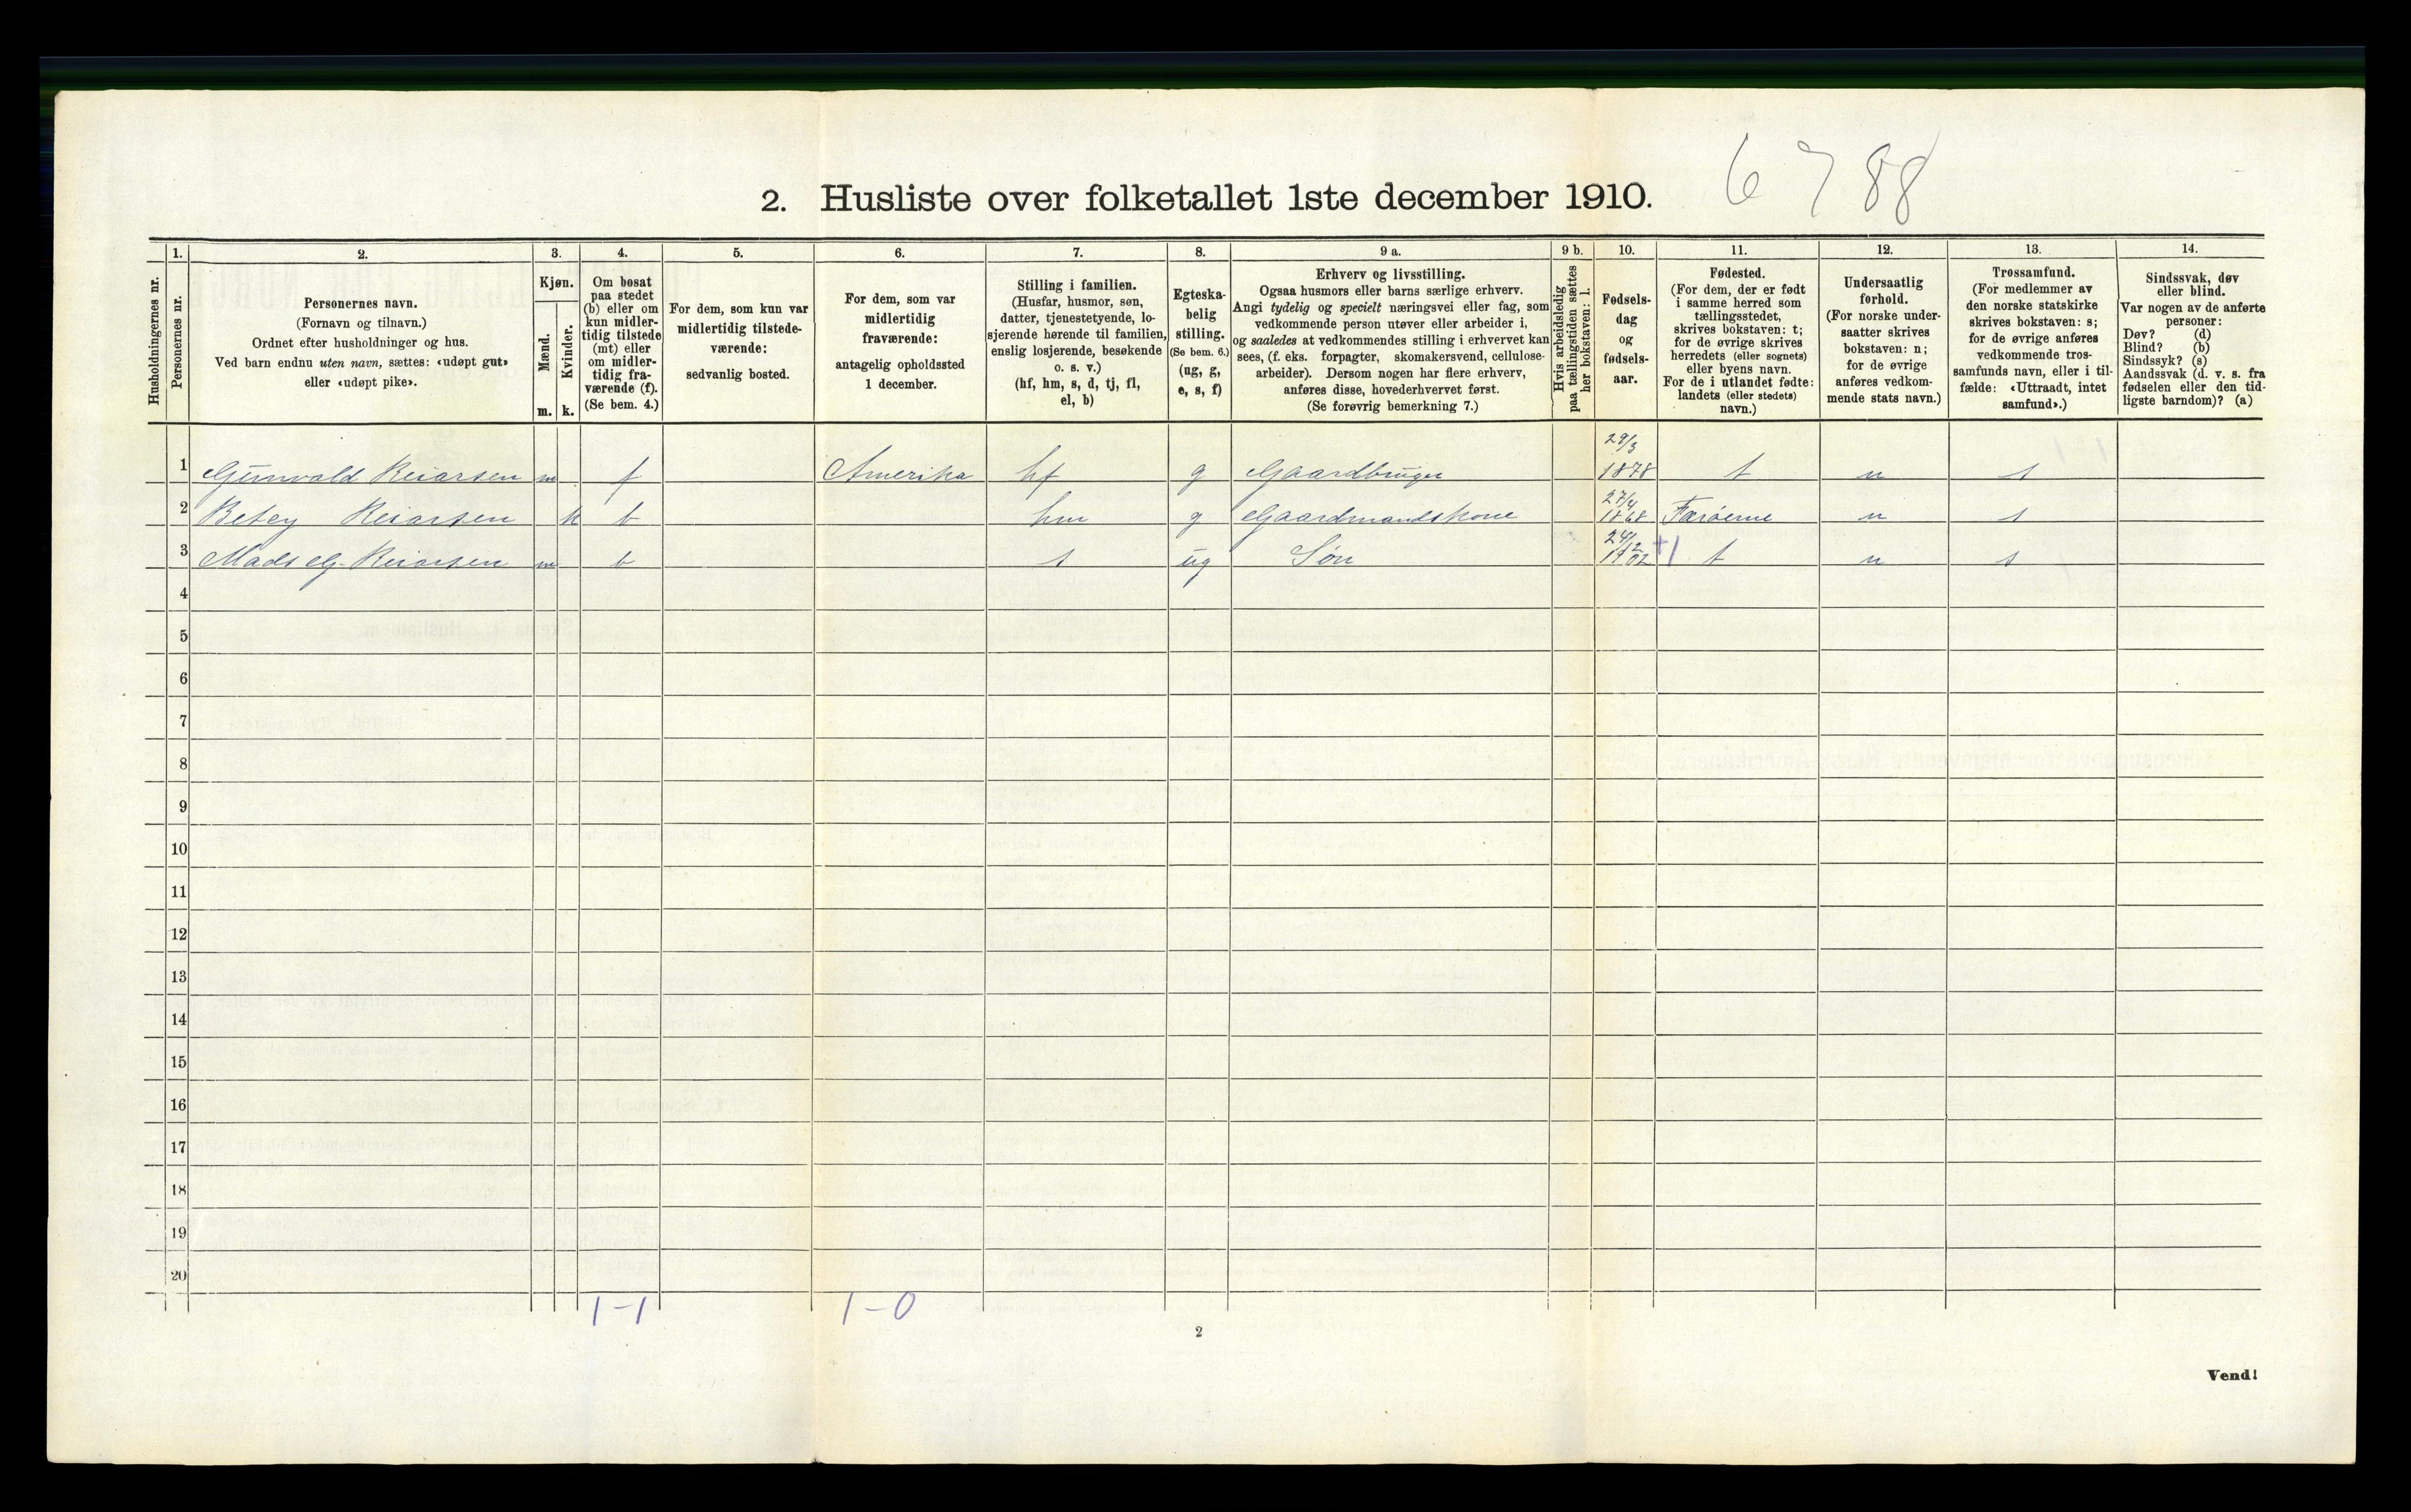 6788
2. Husliste over folketallet 1ste december 1910.
Husholdningernes nr.
1.
Personernes nr.
2.
Personernes navn.
(Fornavn og tilnavn.)
Ordnet efter husholdninger og hus.
Ved barn endnu uten navn, sættes: «udøpt gut»
eller «udøpt pike».
3.
Kjøn.
Mænd.
m.
Kvinder.
k.
4.
Om bosat
paa stedet
(b) eller om
kun midler-
tidig tilstede
(mt) eller
om midler-
tidig fra-
værende (f).
(Se bem. 4.)
5.
For dem, som kun var
midlertidig tilstede-
værende:
sedvanlig bosted.
6.
For dem, som var
midlertidig
fraværende:
antagelig opholdssted
1 december.
7.
Stilling i familien.
(Husfar, husmor, søn,
datter, tjenestetyende, lo-
sjerende hørende til familien,
enslig losjerende, besøkende
o. s. v.)
(hf, hm, s, d, tj, fl,
el, b)
8.
Egteska-
belig
stilling.
(Se bem. 6.)
(ug, g,
e, s, f)
9 a.
Erhverv og livsstilling.
Ogsaa husmors eller barns særlige erhverv.
Angi tydelig og specielt næringsvei eller fag, som
vedkommende person utøver eller arbeider i,
og saaledes at vedkommendes stilling i erhvervet kan
sees, (f. eks. forpagter, skomakersvend, cellulose-
arbeider). Dersom nogen har flere erhverv,
anføres disse, hovederhvervet først.
(Se forøvrig bemerkning 7.)
9 b.
Hvis arbeidsledig
paa tællingstiden sættes
her bokstaven: l.
10.
Fødsels-
dag
og
fødsels-
aar.
11.
Fødested.
(For dem, der er født
i samme herred som
tællingsstedet,
skrives bokstaven: t;
for de øvrige skrives
herredets (eller sognets)
eller byens navn.
For de i utlandet fødte:
landets (eller stedets)
navn.)
12.
Undersaatlig
forhold.
(For norske under-
saatter skrives
bokstaven: n;
for de øvrige
anføres vedkom-
mende stats navn.)
13.
Trossamfund.
(For medlemmer av
den norske statskirke
skrives bokstaven: s;
for de øvrige anføres
vedkommende tros-
samfunds navn, eller i til-
fælde: «Uttraadt, intet
samfund».)
14.
Sindssvak, døv
eller blind.
Var nogen av de anførte
personer:
Døv? (d)
Blind? (b)
Sindssyk? (s)
Aandssvak (d. v. s. fra
fødselen eller den tid-
ligste barndom)? (a)
1 Gunvald Reiarsen m f Amerika hf g Gaardbruger 29/3 1878 t n s
2 Betsy Reiarsen k b hm g Gaardmandskone 27/4 1868 Færøerne n s
3 Mads G. Reiarsen m b s ug Søn 24/12 1902 t n s
4
5
6
7
8
9
10
11
12
13
14
15
16
17
18
19
20
1-1 1-0
2
Vend!